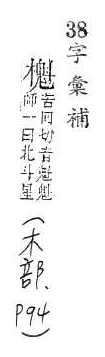 38字彙補
櫆苦回切音魁魁
師一曰北斗星
(木部.
P94)